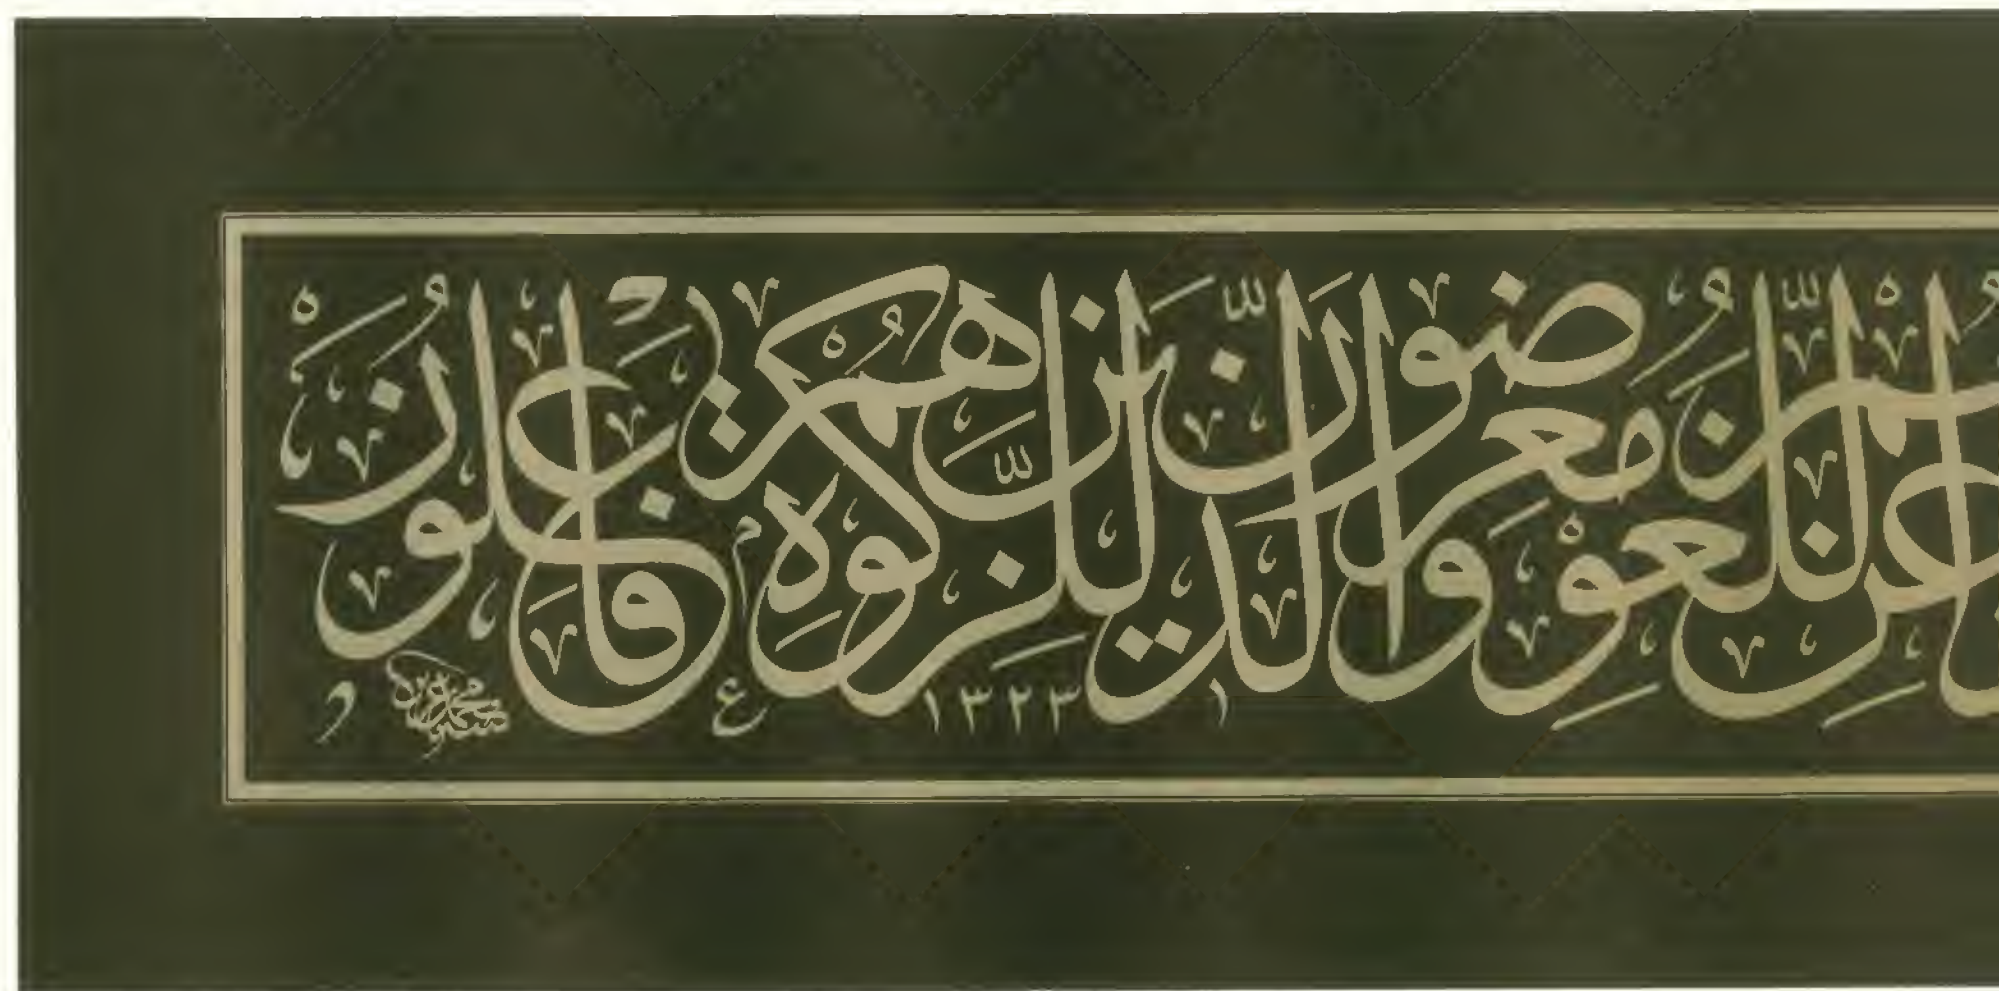 هم عن اللغو معرضون والذين هم للزكوة فاعلون
١٣٢٣